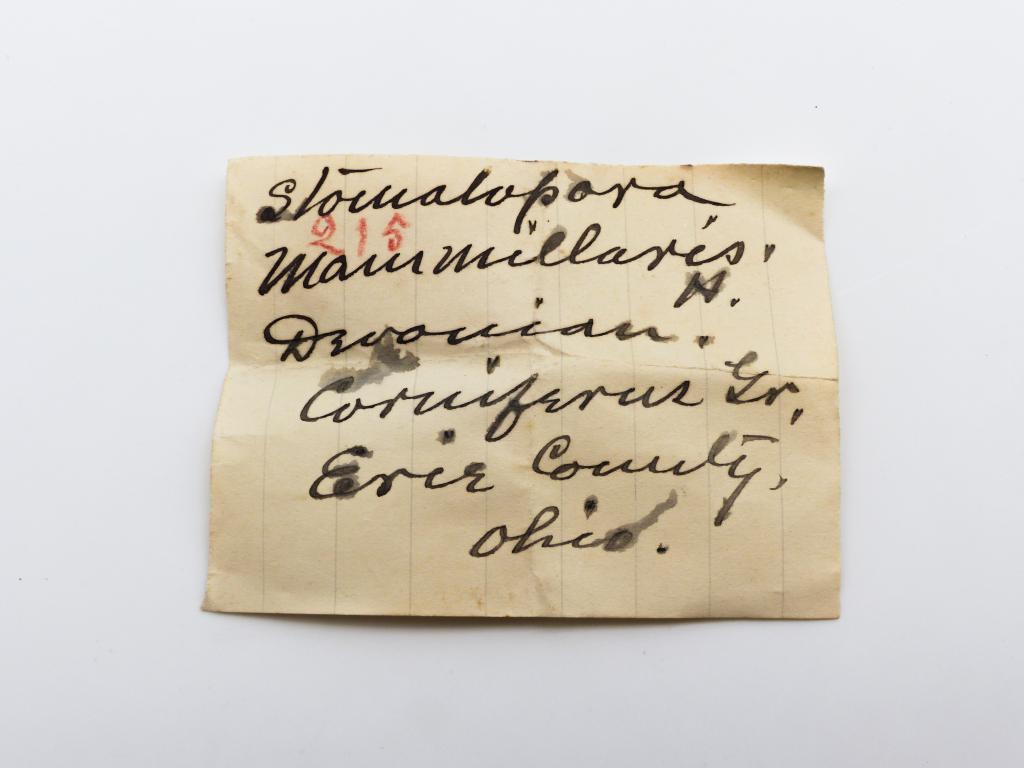 Stomatopora
215
Mammillaris.
H.
Devonian.
Corniferus Gr.
Erie County,
Ohio.